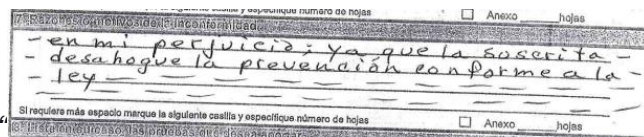 casilla y especifique número de hojas ☐ Anexo ____ hojas
7. Razones o motivos de la inconformidad
- en mi perjuicio; ya que la suscrita -
- desahogue la prevención conforme a la
- ley
Si requiere más espacio marque la siguiente casilla y especifique número de hojas ☐ Anexo ____ hojas
“